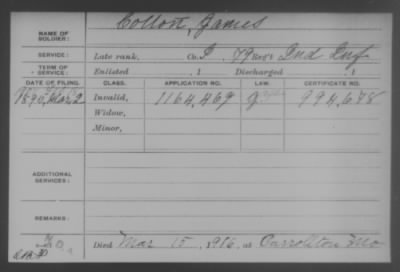 NAME OF SOLDIER: Collott, James
SERVICE: Late rank, Co. I, 79 Reg't Ind Inf
TERM OF SERVICE: Enlisted , 1 Discharged , 1
DATE OF FILING. CLASS. APPLICATION NO. LAW. CERTIFICATE NO.
1895, Mar 2 Invalid, 1164,469 994,678
Widow,
Minor,
ADDITIONAL SERVICES:
REMARKS:
Died Mar 15, 1916, at Carrollton Mo